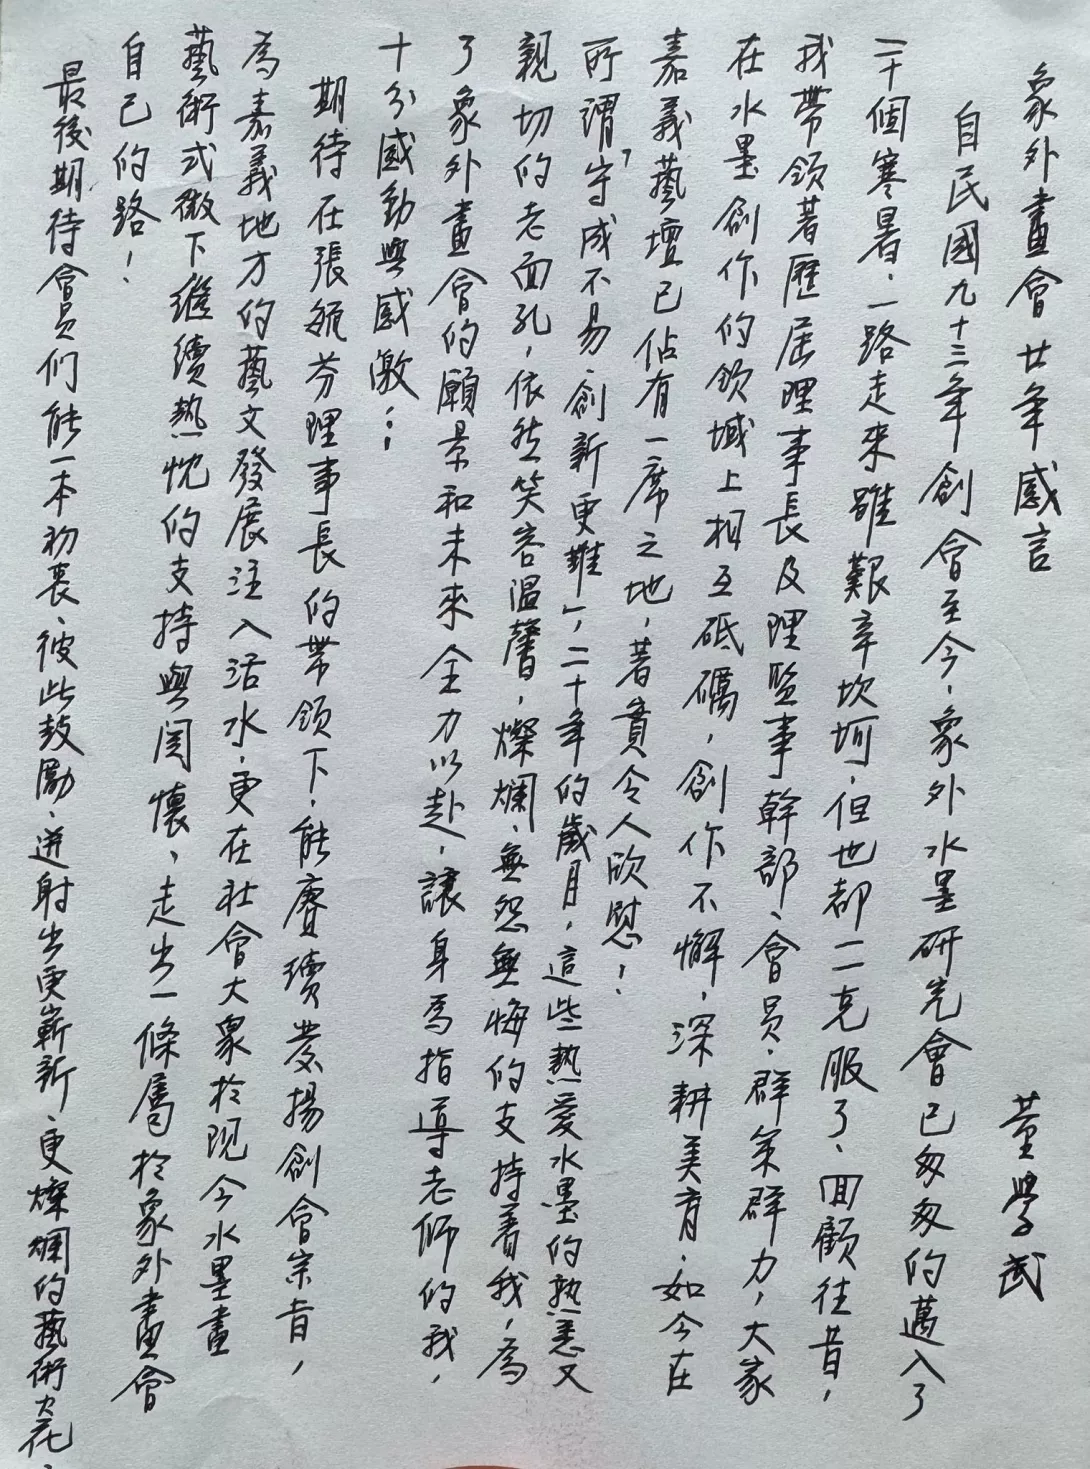 象外畫會廿年感言
董學武
自民國九十三年創會至今，象外水墨研究會已匆匆的邁入了
二十個寒暑，一路走來雖艱辛坎坷，但也都一一克服了、回顧往昔，
我帶領著歷屆理事長及理監事幹部、會員，群策群力，大家
在水墨創作的領域上相互砥礪，創作不懈，深耕美育，如今在
嘉義藝壇已佔有一席之地，著實令人欣慰！
所謂「守成不易，創新更難」，二十年的歲月，這些熱愛水墨的熟悉又
親切的老面孔，依然笑容溫馨，燦爛、無怨無悔的支持着我，為
了象外畫會的願景和未來全力以赴，讓身為指導老師的我，
十分感動與感激…
期待在張毓芬理事長的帶領下，能賡續發揚創會宗旨，
為嘉義地方的藝文發展注入活水，更在社會大眾於現今水墨畫
藝術式微下繼續熱忱的支持與関懷、走出一條屬於象外畫會
自己的路！
最後期待會員们能一本初衷、彼此鼓勵，迸射出更嶄新、更燦爛的藝術火花。